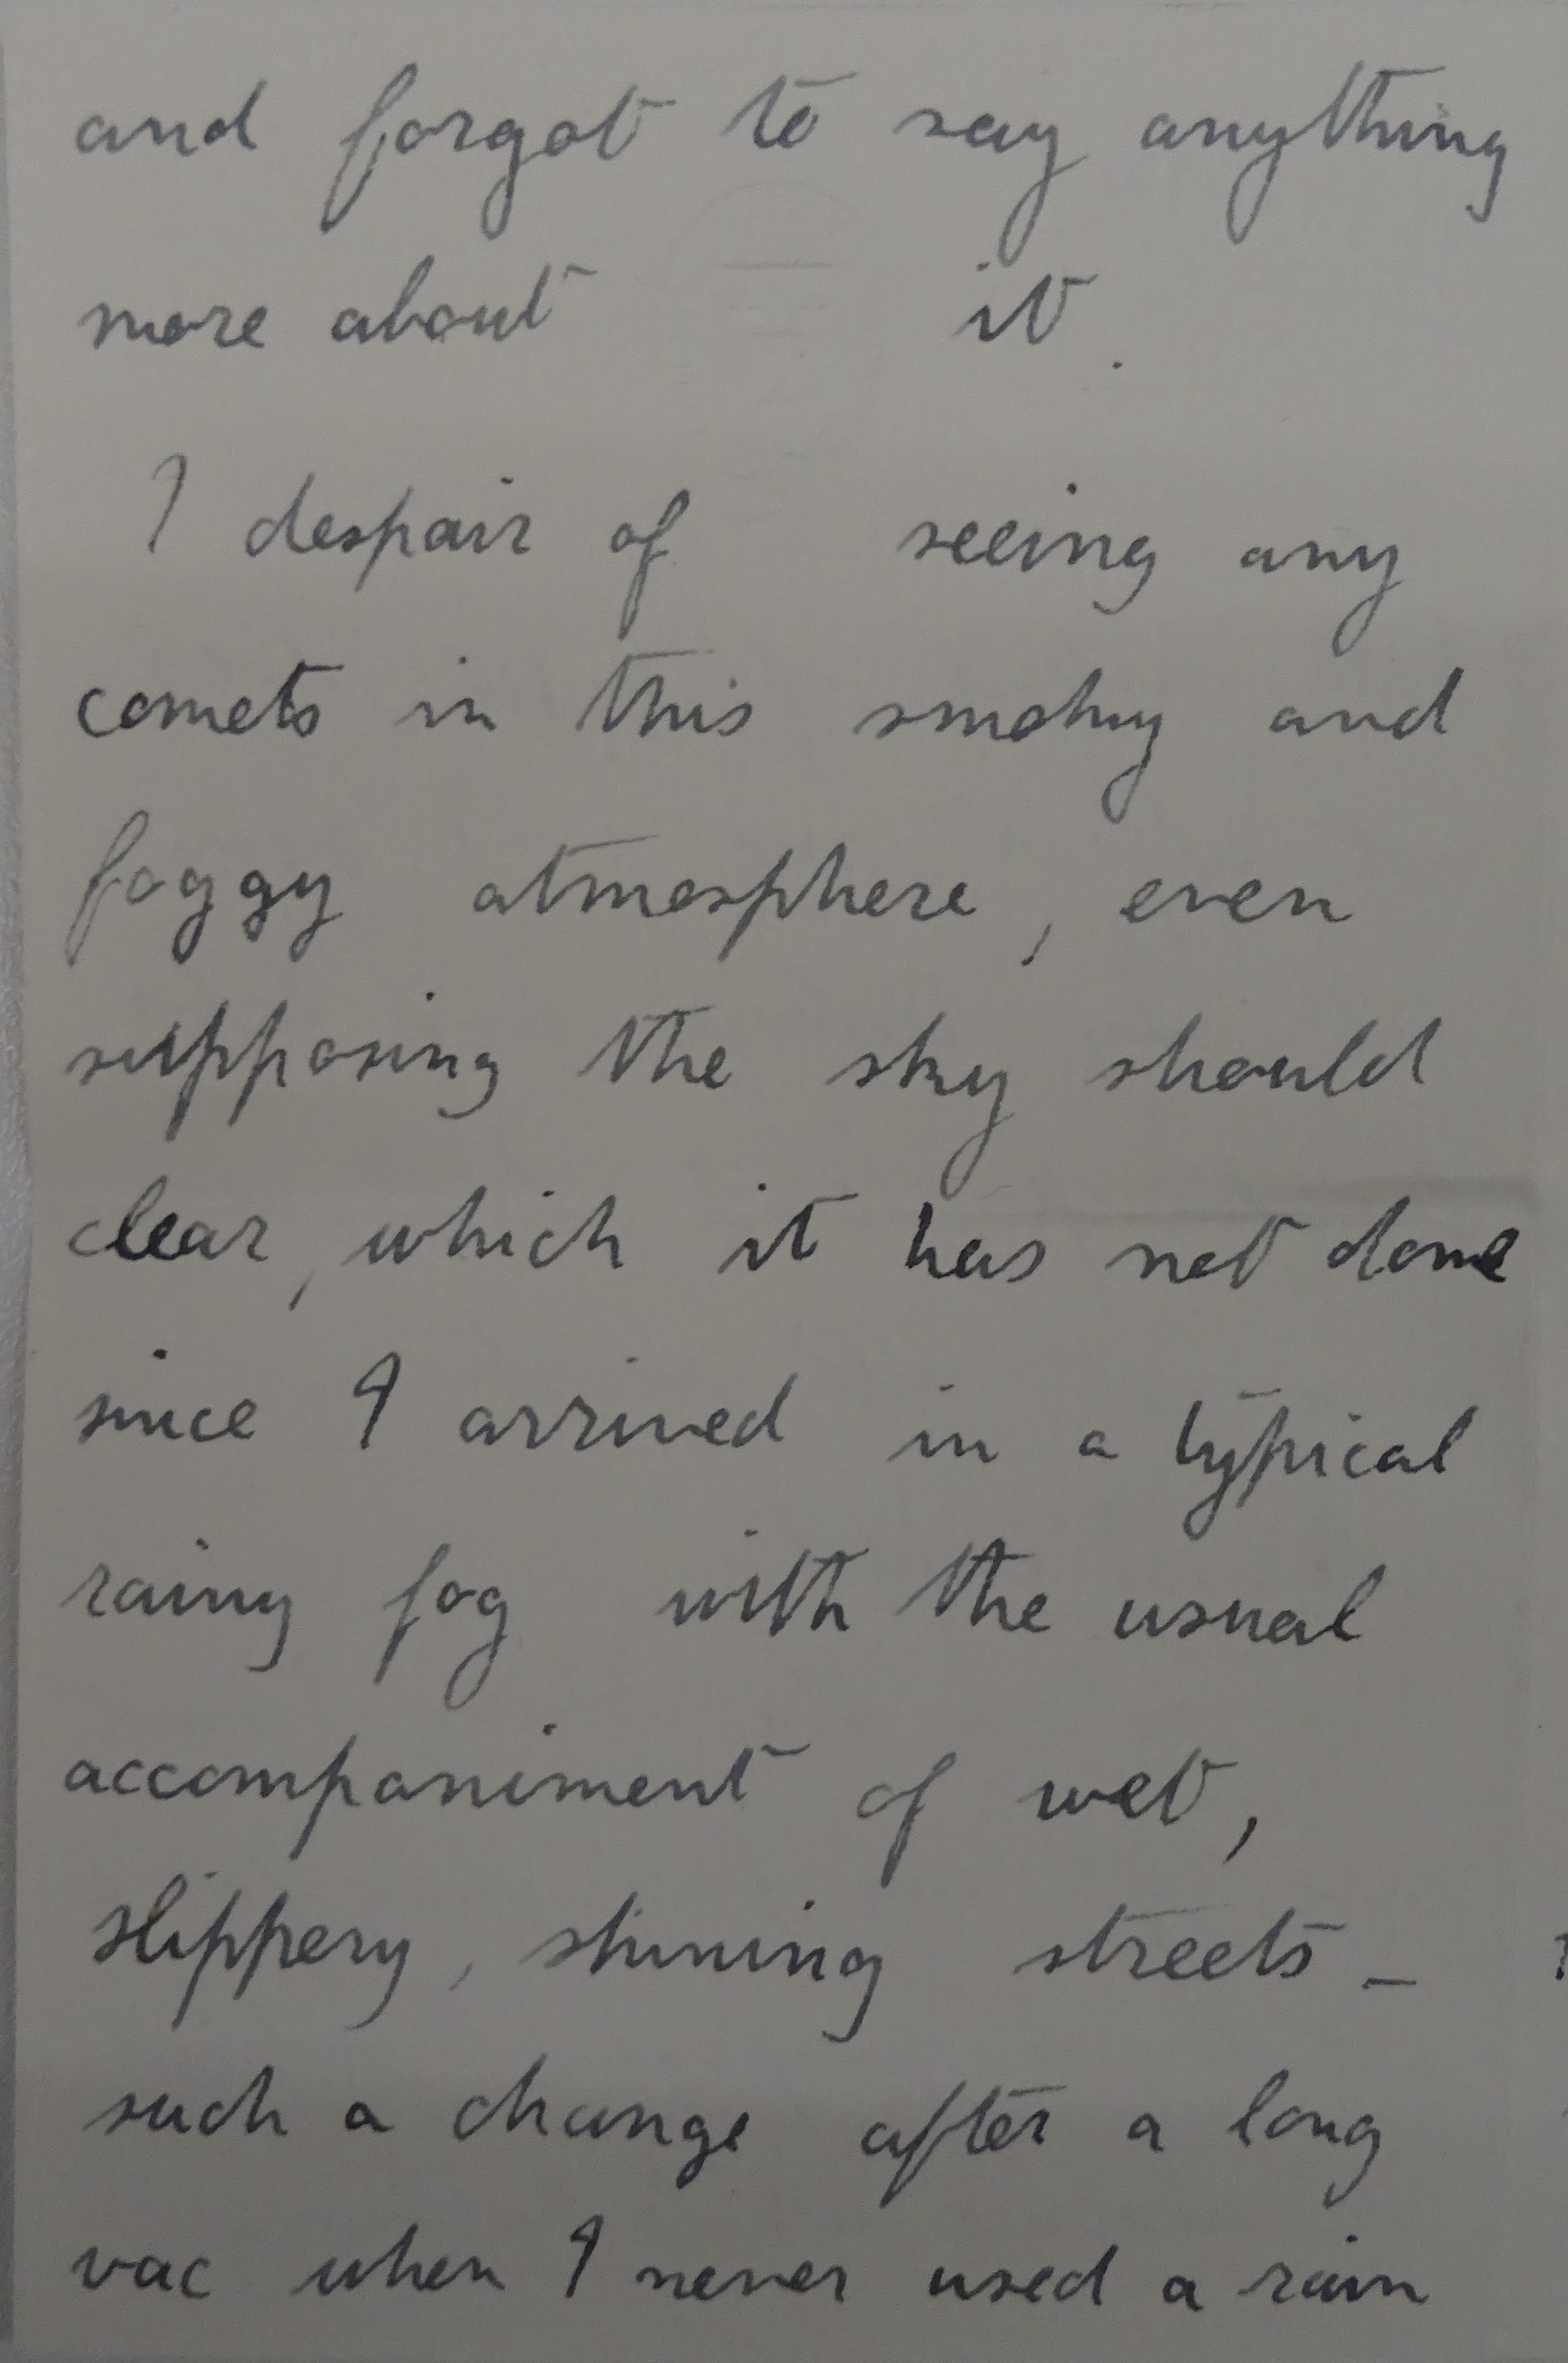 and forgot to say anything
more about it.
I despair of seeing any
comets in this smoky and
foggy atmosphere, even
supposing the sky should
clear, which it has not done
since I arrived in a typical
rainy fog with the usual
accompaniment of wet,
slippery, shining streets –
such a change after a long
vac when I never used a rain